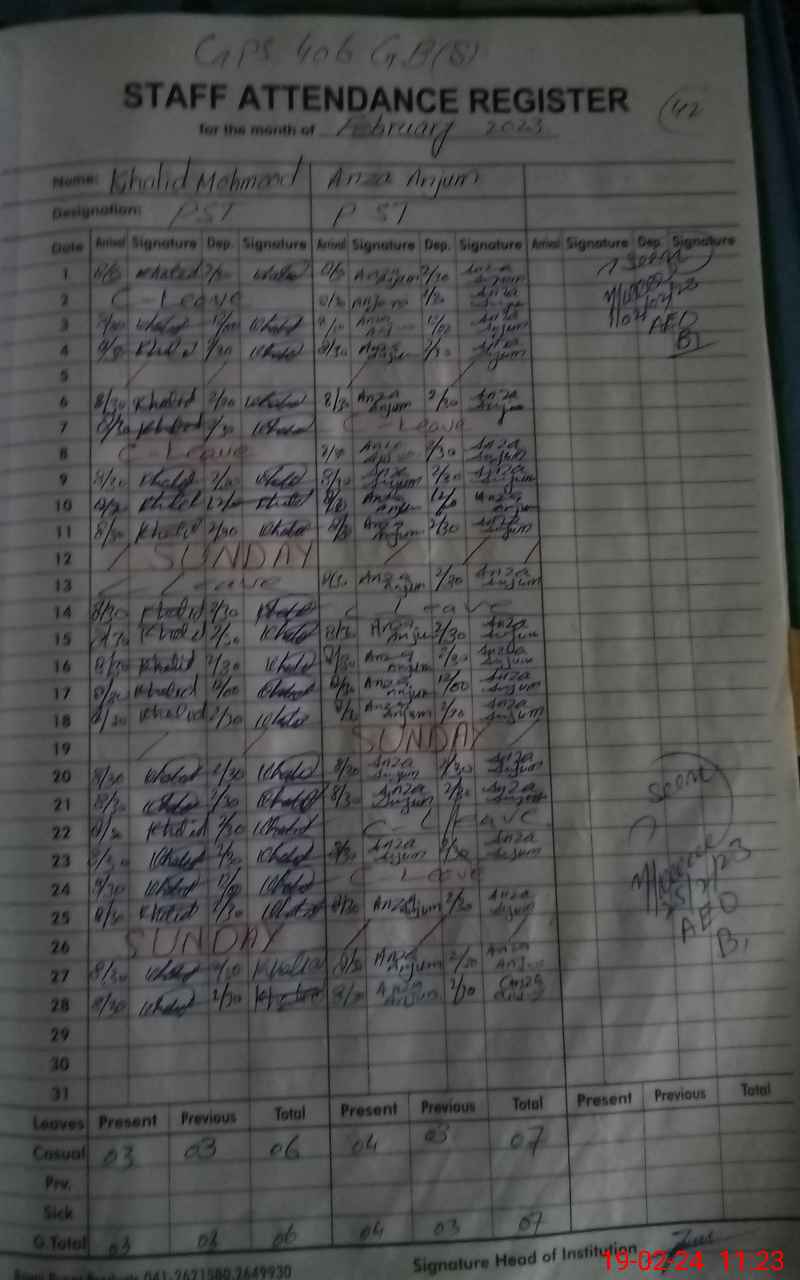 GPS 406 GB(S)
STAFF ATTENDANCE REGISTER
42
for the month of February 2023
Name: Khalid Mehmood Anza Anjum
Designation: PST PST
Date Arrival Signature Dep. Signature Arrival Signature Dep. Signature Arrival Signature Dep. Signature
1 Khalid Khalid Anza Anjum 2/30 Anza Anjum Seen
2 C-Leave Anjum Anza Anjum
3 Khalid Khalid Anza Anjum Anza Anjum
4 Khalid 2/30 Khalid 8/30 Anza Anjum 2/30 Anza Anjum AEO
B1
5
6 8/30 Khalid 2/30 Khalid 8/30 Anza Anjum 2/30 Anza Anjum
7 8/30 Khalid 2/30 Khalid C-Leave
8 C-Leave Anza 2/30 Anza Anjum
9 8/30 Khalid 2/30 Khalid 8/30 Anza Anjum 2/30 Anza Anjum
10 Khalid Khalid Anza Anjum Anza Anjum
11 8/30 Khalid 2/30 Khalid 8/30 Anza Anjum 2/30 Anza Anjum
12 SUNDAY
13 Leave 8/30 Anza Anjum 2/30 Anza Anjum
14 8/30 Khalid 2/30 Khalid C Leave
15 8/30 Khalid 2/30 Khalid 8/30 Anza Anjum 2/30 Anza Anjum
16 8/30 Khalid 2/30 Khalid 8/30 Anza Anjum 2/30 Anza Anjum
17 8/30 Khalid 12/00 Khalid 8/30 Anza Anjum 12/00 Anza Anjum
18 8/30 Khalid 2/30 Khalid Anza Anjum 2/30 Anza Anjum
19 SUNDAY
20 8/30 Khalid 2/30 Khalid 8/30 Anza Anjum 2/30 Anza Anjum
21 8/30 Khalid 2/30 Khalid 8/30 Anza Anjum 2/30 Anza Anjum Seen
22 8/30 Khalid 2/30 Khalid C-Leave
23 8/30 Khalid 2/30 Khalid 8/30 Anza Anjum Anza Anjum
24 8/30 Khalid Khalid C Leave
25 8/30 Khalid 2/30 Khalid 8/30 Anza Anjum 2/30 Anza Anjum 25/2/23
AEO
B1
26 SUNDAY
27 8/30 Khalid 2/30 Khalid 8/30 Anza Anjum 2/30 Anza Anjum
28 8/30 Khalid 2/30 Khalid 8/30 Anza Anjum 2/30 Anza
29
30
31
Leaves Present Previous Total Present Previous Total Present Previous Total
Casual 03 03 06 04 03 07
Prv.
Sick
G.Total 03 03 06 04 03 07
Signature Head of Institution
041-2621580,2649930
19-02-24 11:23